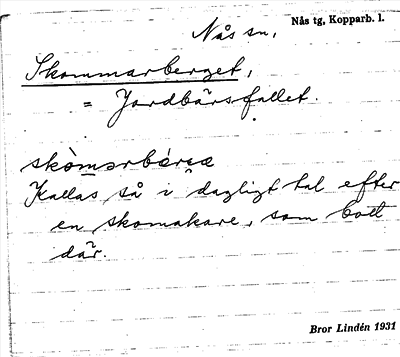 Nås sn.
Nås tg, Kopparb. l.
Skommarberget,
= Jordbärsfallet.
Kallas så i dagligt tal efter
en skomakare, som bott
där.
Bror Lindén 1931